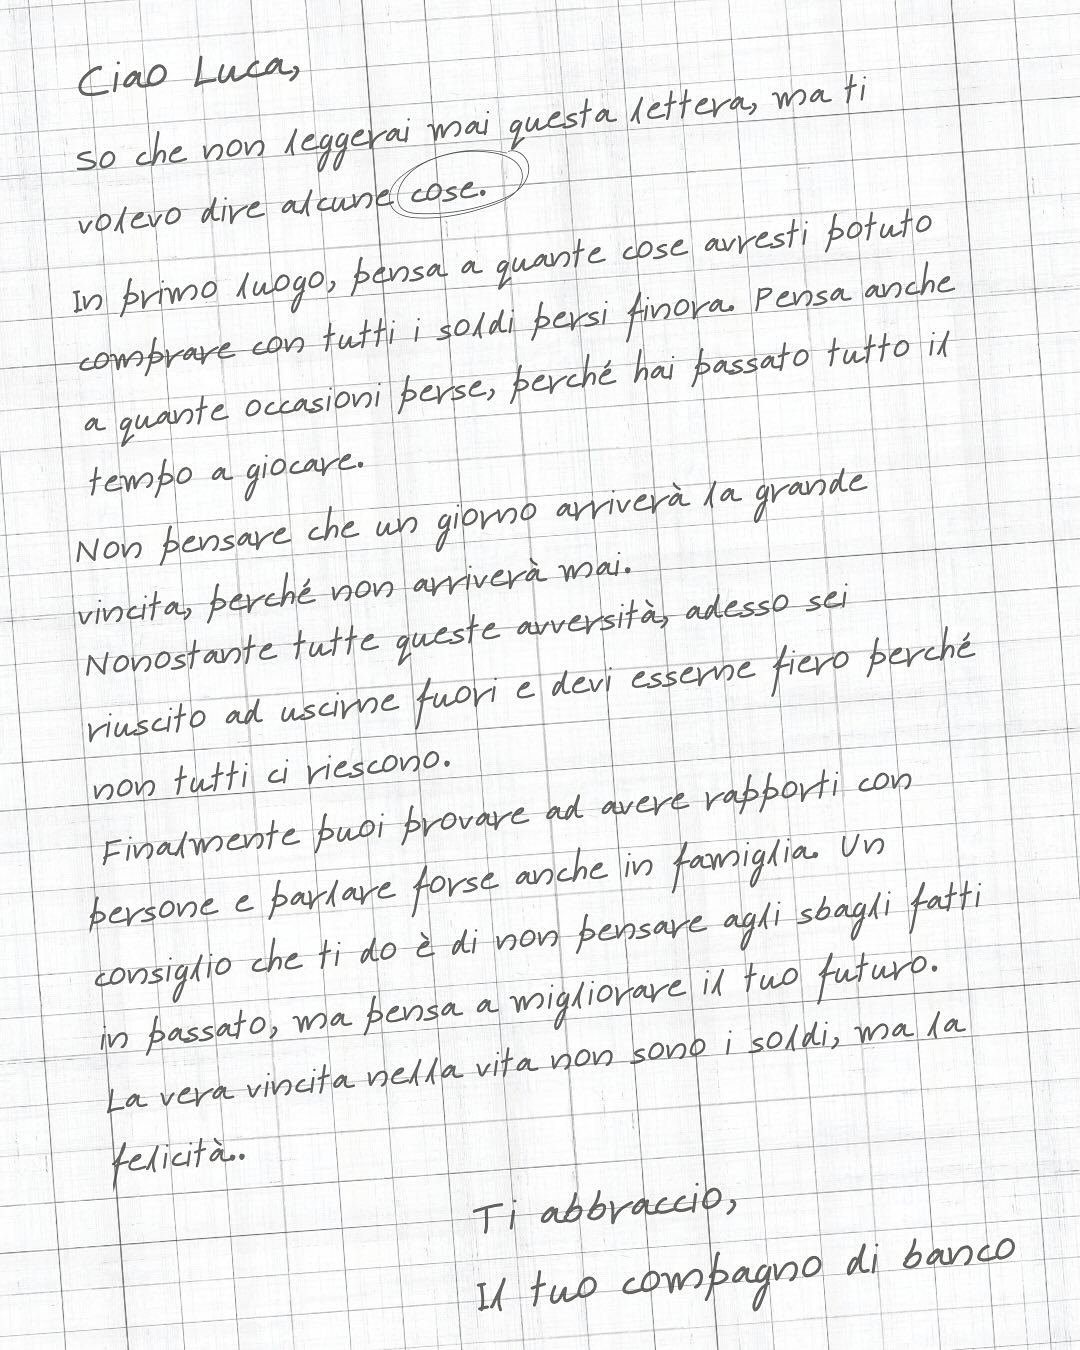 Ciao Luca,
so che non leggerai mai questa lettera, ma ti
volevo dire alcune cose.
In primo luogo, pensa a quante cose avresti potuto
comprare con tutti i soldi persi finora. Pensa anche
a quante occasioni perse, perché hai passato tutto il
tempo a giocare.
Non pensare che un giorno arriverà la grande
vincita, perché non arriverà mai.
Nonostante tutte queste avversità, adesso sei
riuscito ad uscirne fuori e devi esserne fiero perché
non tutti ci riescono.
Finalmente puoi provare ad avere rapporti con
persone e parlare forse anche in famiglia. Un
consiglio che ti do è di non pensare agli sbagli fatti
in passato, ma pensa a migliorare il tuo futuro.
La vera vincita nella vita non sono i soldi, ma la
felicità..
Ti abbraccio,
Il tuo compagno di banco